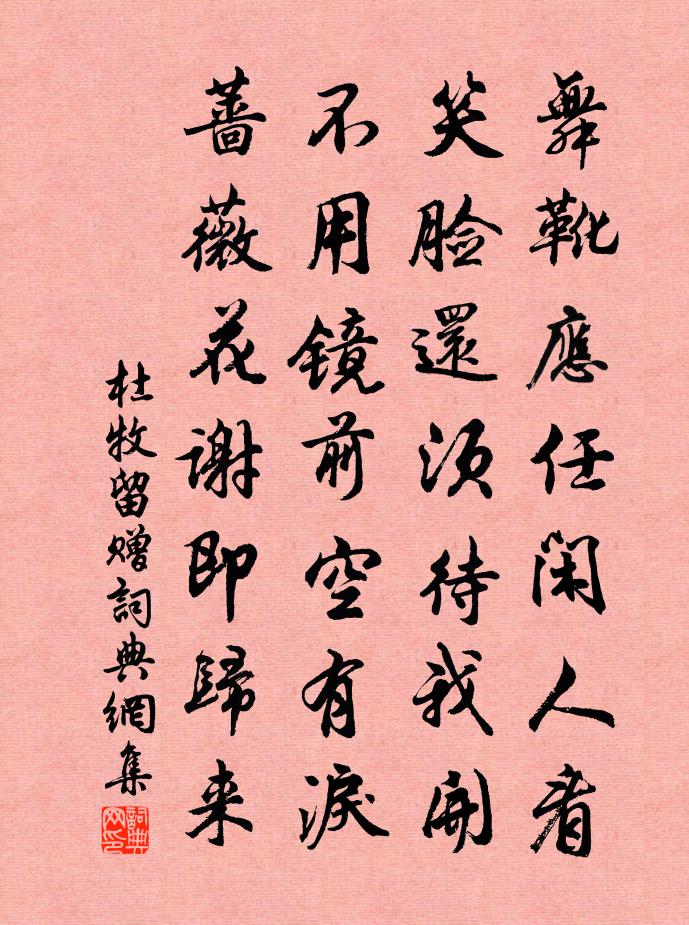 舞靴應任閑人看
笑臉還須待我開
不用镜前空有淚
薔薇花謝即歸来
杜牧留贈詞典網集
詞典網印